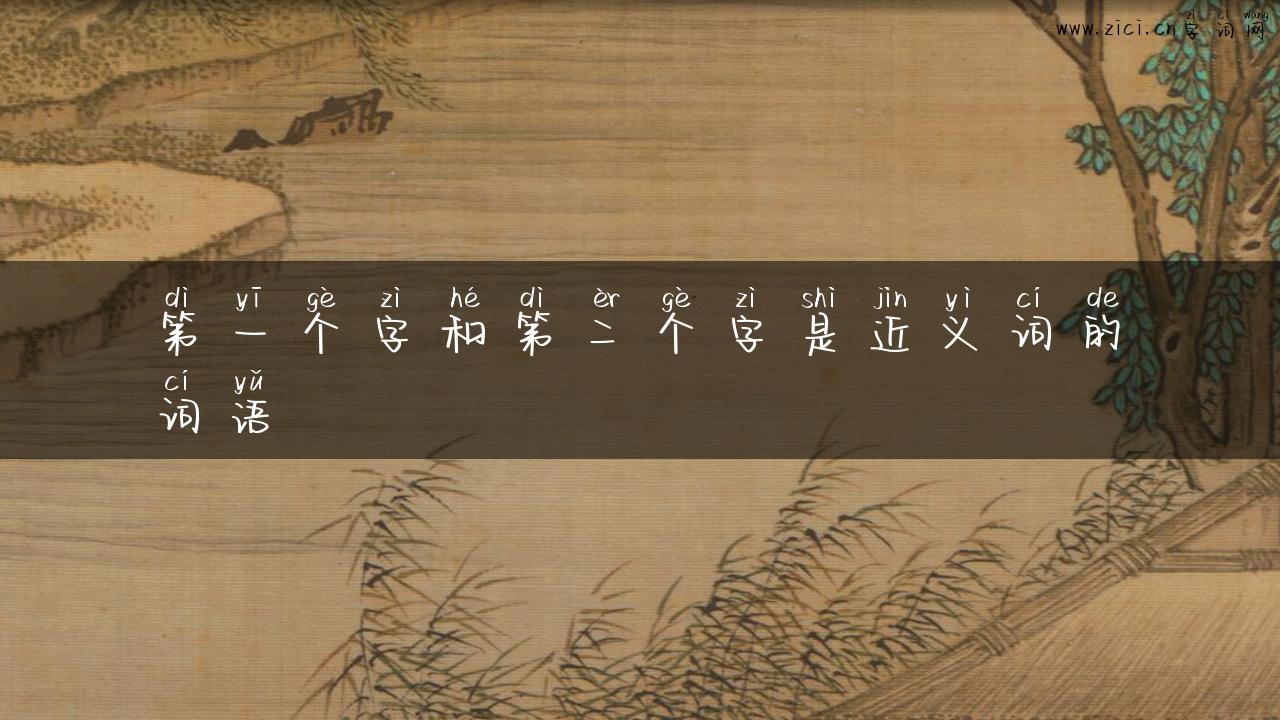 zì cí wǎng
www.zici.cn字词网
dì yī gè zì hé dì èr gè zì shì jìn yì cí de
第一个字和第二个字是近义词的
cí yǔ
词语